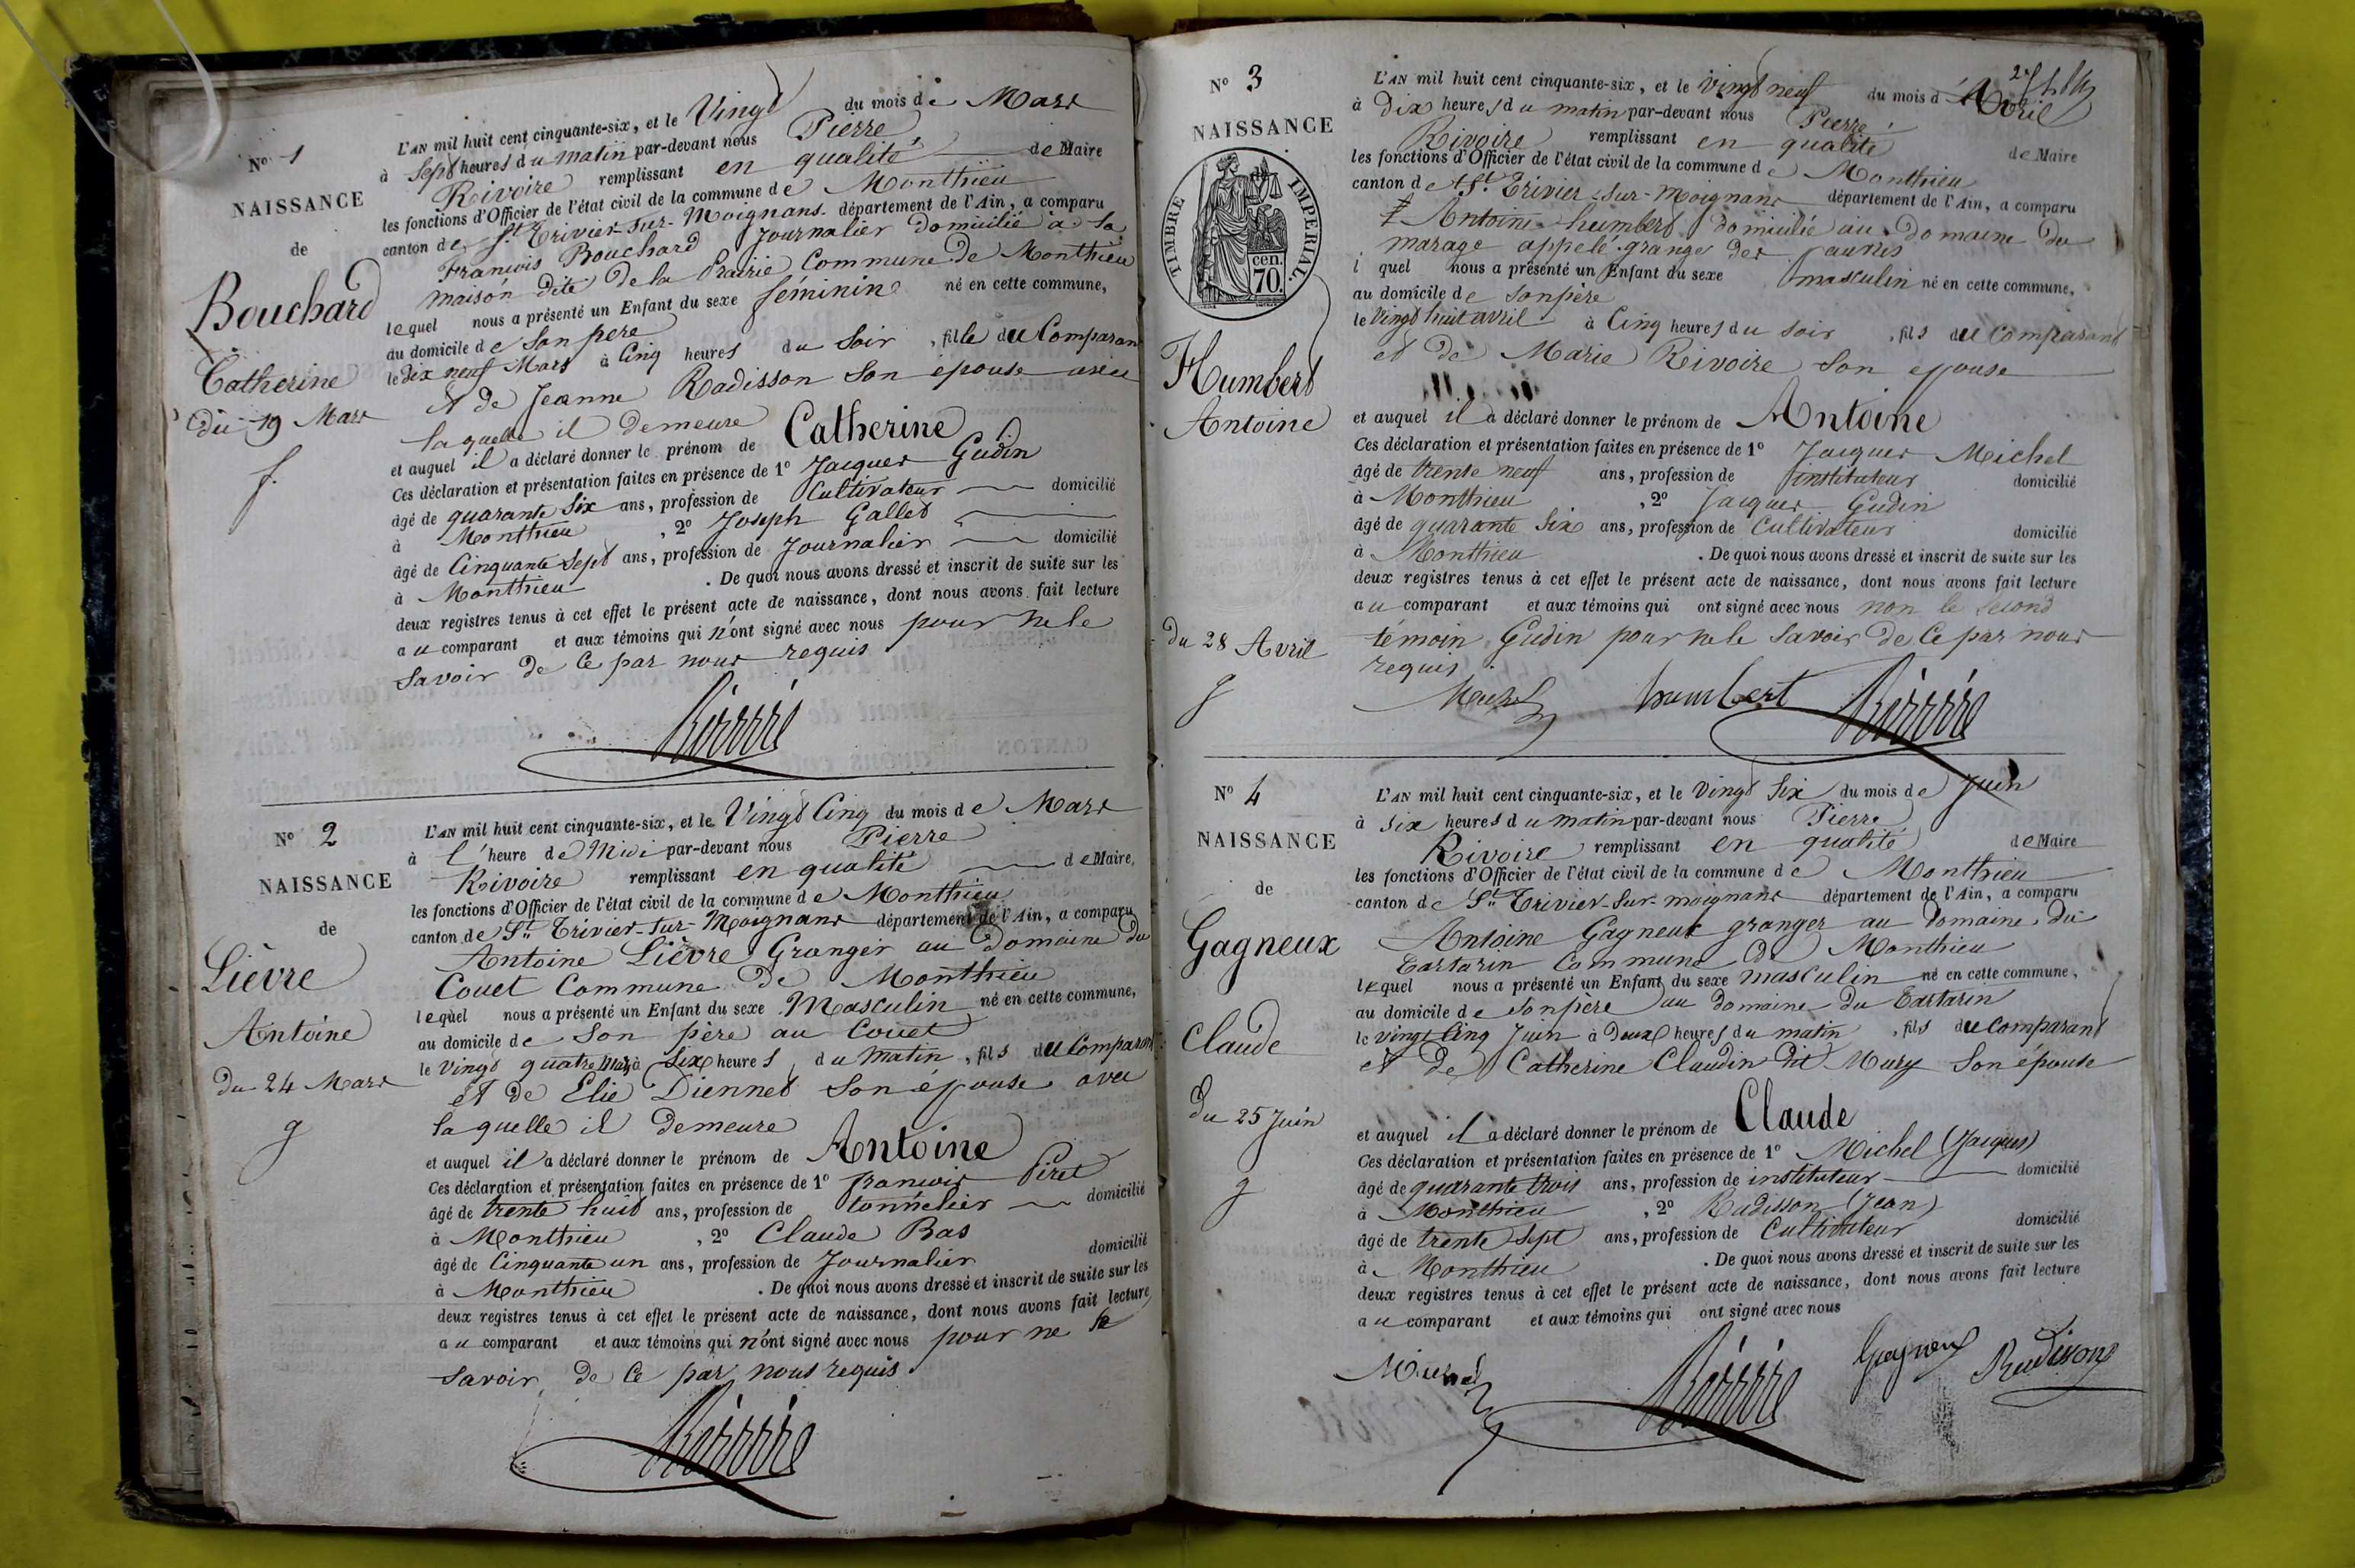 N° 1
NAISSANCE
de
Bouchard
Catherine
du 19 Mars
f.
L'AN mil huit cent cinquante-six, et le Vingt du mois de Mars
à Sept heures du matin par-devant nous Pierre
Rivoire remplissant en qualité de Maire
les fonctions d'Officier de l'état civil de la commune de Monthieu
canton de St. Trivier-sur-Moignans département de l'Ain, a comparu
François Bouchard Journalier domicilié à la
maison dite de la Prairie Commune de Monthieu
lequel nous a présenté un Enfant du sexe féminin né en cette commune,
au domicile de son père
le dix neuf Mars à Cinq heures du Soir, fille du Comparan
et de Jeanne Radisson son épouse avec
laquelle il demeure
et auquel il a déclaré donner le prénom de Catherine
Ces déclaration et présentation faites en présence de 1° Jacques Gudin
âgé de quarante Six ans, profession de Cultivateur domicilié
à Monthieu, 2° Joseph Gallet
âgé de Cinquante Sept ans, profession de Journalier domicilié
à Monthieu. De quoi nous avons dressé et inscrit de suite sur les
deux registres tenus à cet effet le présent acte de naissance, dont nous avons fait lecture
au comparant et aux témoins qui n'ont signé avec nous pour ne le
savoir de ce par nous requis
Rivoire
N° 2
NAISSANCE
de
Lièvre
Antoine
du 24 Mars
g
L'AN mil huit cent cinquante-six, et le Vingt Cinq du mois de Mars
à l'heure de Midi par-devant nous Pierre
Rivoire remplissant en qualité de Maire,
les fonctions d'Officier de l'état civil de la commune de Monthieu
canton de St. Trivier-sur-Moignans département de l'Ain, a comparu
Antoine Lièvre Granger au Domaine du
Couet Commune de Monthieu
lequel nous a présenté un Enfant du sexe Masculin né en cette commune,
au domicile de son père au Couet
le Vingt quatre Mars à Six heures du matin, fils du Comparant
et de Elie Diennet son épouse avec
laquelle il demeure
et auquel il a déclaré donner le prénom de Antoine
Ces déclaration et présentation faites en présence de 1° François Piret
âgé de trente huit ans, profession de tonnelier domicilié
à Monthieu, 2° Claude Bas
âgé de Cinquante un ans, profession de Journalier domicilié
à Monthieu. De quoi nous avons dressé et inscrit de suite sur les
deux registres tenus à cet effet le présent acte de naissance, dont nous avons fait lecture
au comparant et aux témoins qui n'ont signé avec nous pour ne le
savoir de ce par nous requis.
Rivoire
N° 3
NAISSANCE
TIMBRE IMPÉRIAL.
cen.
70.
Humbert
Antoine
du 28 Avril
g
L'AN mil huit cent cinquante-six, et le vingt neuf du mois d'Avril
à Dix heures du matin par-devant nous Pierre
Rivoire remplissant en qualité de Maire
les fonctions d'Officier de l'état civil de la commune de Monthieu
canton de St. Trivier-sur-Moignans département de l'Ain, a comparu
Antoine humbert domicilié au domaine du
marage appelé grange des pauvres
lquel nous a présenté un Enfant du sexe masculin né en cette commune,
au domicile de son père
le Vingt huit avril à Cinq heures du Soir, fils du Comparant
et de Marie Rivoire son épouse
et auquel il a déclaré donner le prénom de Antoine
Ces déclaration et présentation faites en présence de 1° Jacques Michel
âgé de trente neuf ans, profession de instituteur domicilié
à Monthieu, 2° Jacques Gudin
âgé de quarante Six ans, profession de Cultivateur domicilié
à Monthieu. De quoi nous avons dressé et inscrit de suite sur les
deux registres tenus à cet effet le présent acte de naissance, dont nous avons fait lecture
au comparant et aux témoins qui ont signé avec nous non le second
témoin Gudin pour ne le savoir de ce par nous
requis
Michel humbert Rivoire
N° 4
NAISSANCE
de
Gagneux
Claude
Du 25 Juin
g
L'AN mil huit cent cinquante-six, et le Vingt Six du mois de Juin
à six heures du matin par-devant nous Pierre
Rivoire remplissant en qualité de Maire
les fonctions d'Officier de l'état civil de la commune de Monthieu
canton de St. Trivier-sur-moignans département de l'Ain, a comparu
Antoine Gagneux granger au domaine du
Tartarin Commune de Monthieu
lequel nous a présenté un Enfant du sexe masculin né en cette commune,
au domicile de son père au domaine du Tartarin
le vingt Cinq Juin à Deux heures du matin, fils du Comparant
et de Catherine Claudin dit Mury son épouse
et auquel il a déclaré donner le prénom de Claude
Ces déclaration et présentation faites en présence de 1° Michel (Jacques)
âgé de quarante trois ans, profession de instituteur domicilié
à Monthieu, 2° Radisson (Jean)
âgé de trente Sept ans, profession de Cultivateur domicilié
à Monthieu. De quoi nous avons dressé et inscrit de suite sur les
deux registres tenus à cet effet le présent acte de naissance, dont nous avons fait lecture
au comparant et aux témoins qui ont signé avec nous
Michel Rivoire Gagneux Radisson